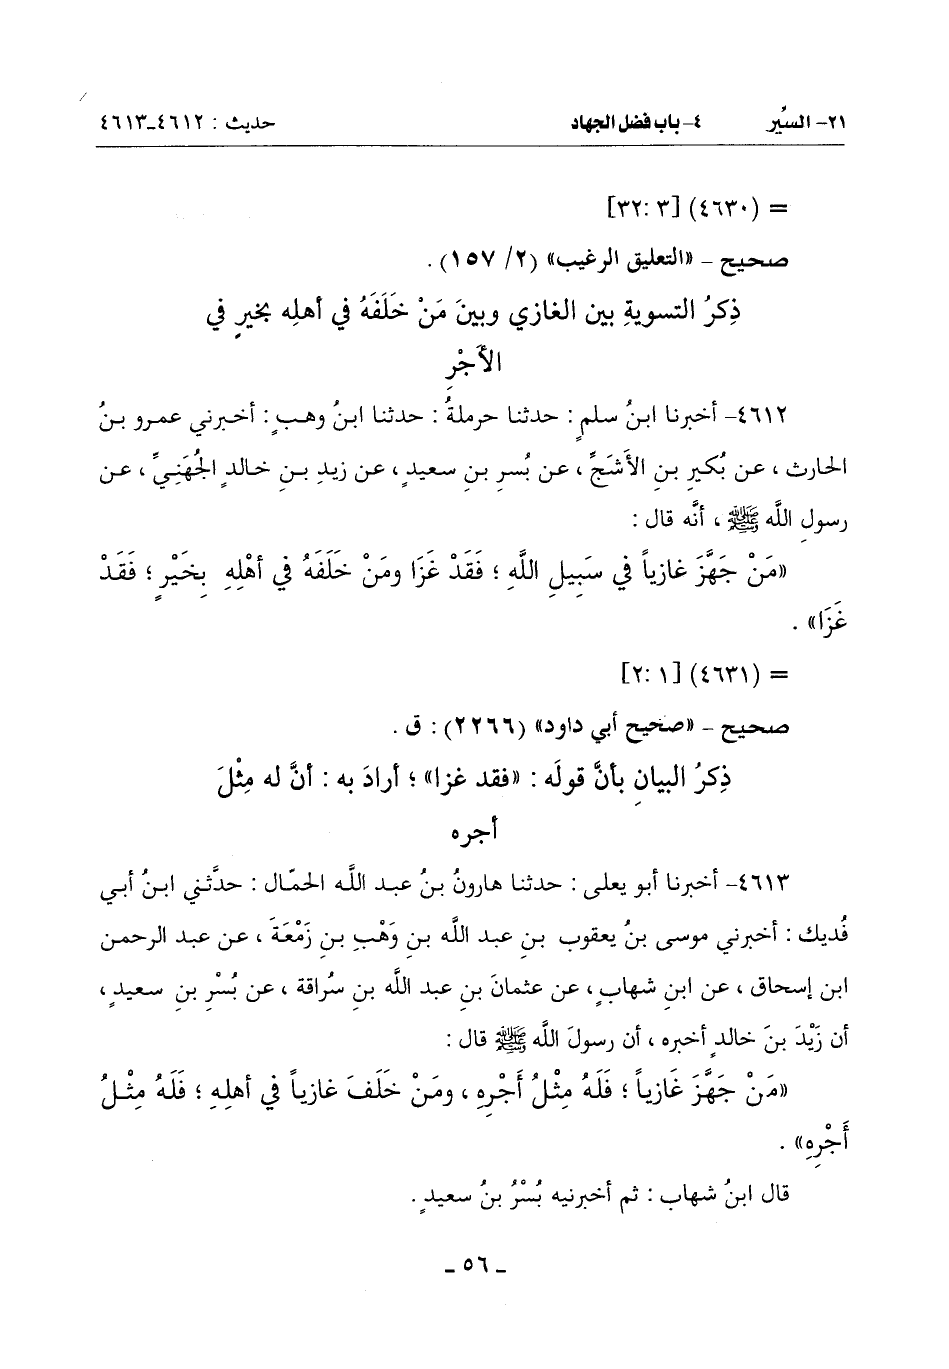 ٢١- السِّيَر ٤- باب فضل الجهاد حديث : ٤٦١٢-٤٦١٣
= (٤٦٣٠) [٣ :٣٢]
صحيح - «التعليق الرغيب» (٢/ ١٥٧) .
ذِكرُ التسويةِ بين الغازي وبينَ مَنْ خَلَفَهُ في أهلِه بخيرٍ في
الأَجْرِ
٤٦١٢- أخبرنا ابنُ سلمٍ : حدثنا حرملةُ : حدثنا ابنُ وهبٍ : أخبرني عمرو بنُ
الحارث ، عن بُكيرِ بنِ الأَشَجِّ ، عن بُسرِ بنِ سعيدٍ ، عن زيدِ بنِ خالدٍ الجُهَنِيِّ ، عن
رسولِ اللَّه ﷺ ، أنَّه قال :
«مَنْ جَهَّزَ غازياً في سَبِيلِ اللَّهِ ؛ فَقَدْ غَزَا ومَنْ خَلَفَهُ في أهْلِهِ بِخَيْرٍ ؛ فَقَدْ
غَزَا» .
= (٤٦٣١) [١ :٢]
صحيح - «صحيح أبي داود» (٢٢٦٦) : ق .
ذِكرُ البيانِ بأنَّ قولَه : «فقد غزا» ؛ أرادَ به : أنَّ له مِثْلَ
أجره
٤٦١٣- أخبرنا أبو يعلى : حدثنا هارونُ بنُ عبد اللَّه الحمّال : حدَّثني ابنُ أبي
فُديك : أخبرني موسى بنُ يعقوب بنِ عبد الله بنِ وَهْبِ بنِ زَمْعَةَ ، عن عبد الرحمن
ابن إسحاق ، عن ابنِ شهابٍ ، عن عثمانَ بنِ عبد الله بنِ سُراقة ، عن بُسْرِ بنِ سعيدٍ ،
أن زَيْدَ بنَ خالدٍ أخبره ، أن رسولَ اللَّه ﷺ قال :
«مَنْ جَهَّزَ غَازِياً ؛ فَلَهُ مِثْلُ أَجْرِهِ ، ومَنْ خَلَفَ غازياً في أهلِهِ ؛ فَلَهُ مِثْلُ
أَجْرِهِ» .
قال ابنُ شهاب : ثم أخبرنيه بُسْرُ بنُ سعيدٍ .
- ٥٦ -